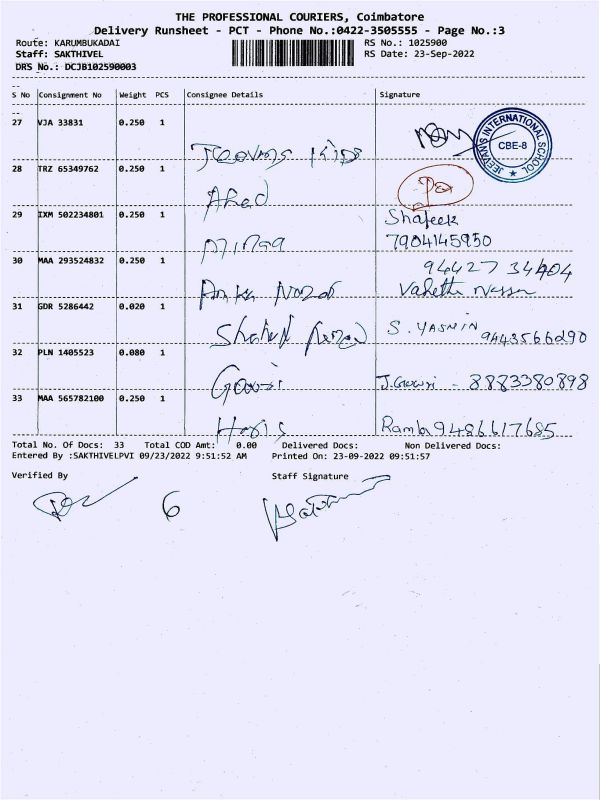 THE PROFESSIONAL COURIERS, Coimbatore
Delivery Runsheet - PCT - Phone No.:0422-3505555 - Page No.:3
Route: KARUMBUKADAI RS No.: 1025900
Staff: SAKTHIVEL RS Date: 23-Sep-2022
DRS No.: DCJB102590003
S No Consignment No Weight PCS Consignee Details Signature
27 VJA 33831 0.250 1
JEEVAN'S INTERNATIONAL SCHOOL CBE-8
28 TRZ 65349762 0.250 1
Ahad
29 IXM 502234801 0.250 1 Shafeek
7904145950
30 MAA 293524832 0.250 1 94427 34404
31 GDR 5286442 0.020 1
S. YASMIN 9443566290
32 PLN 1405523 0.080 1
Gowri J. Gowri - 8883380898
33 MAA 565782100 0.250 1
Haris Ramba 9486617685
Total No. Of Docs: 33 Total COD Amt: 0.00 Delivered Docs: Non Delivered Docs:
Entered By :SAKTHIVELPVI 09/23/2022 9:51:52 AM Printed On: 23-09-2022 09:51:57
Verified By Staff Signature
6